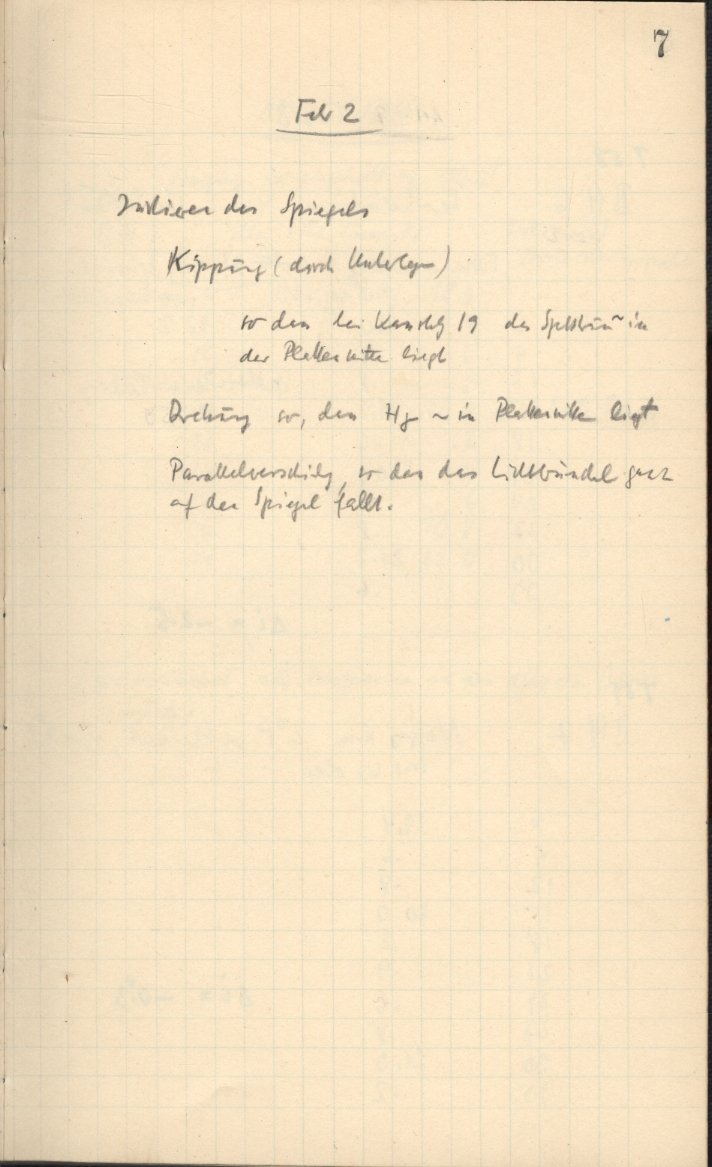 7
Feb 2
Justieren des Spiegels
Kippung (durch Unterlegen)
so dass bei 19 das ~ in
der Plattenmitte liegt
Drehung so, dass Hg ~ in Plattenmitte liegt
Parallelverschiebg, so dass das Lichtbündel ganz
auf den Spiegel fällt.